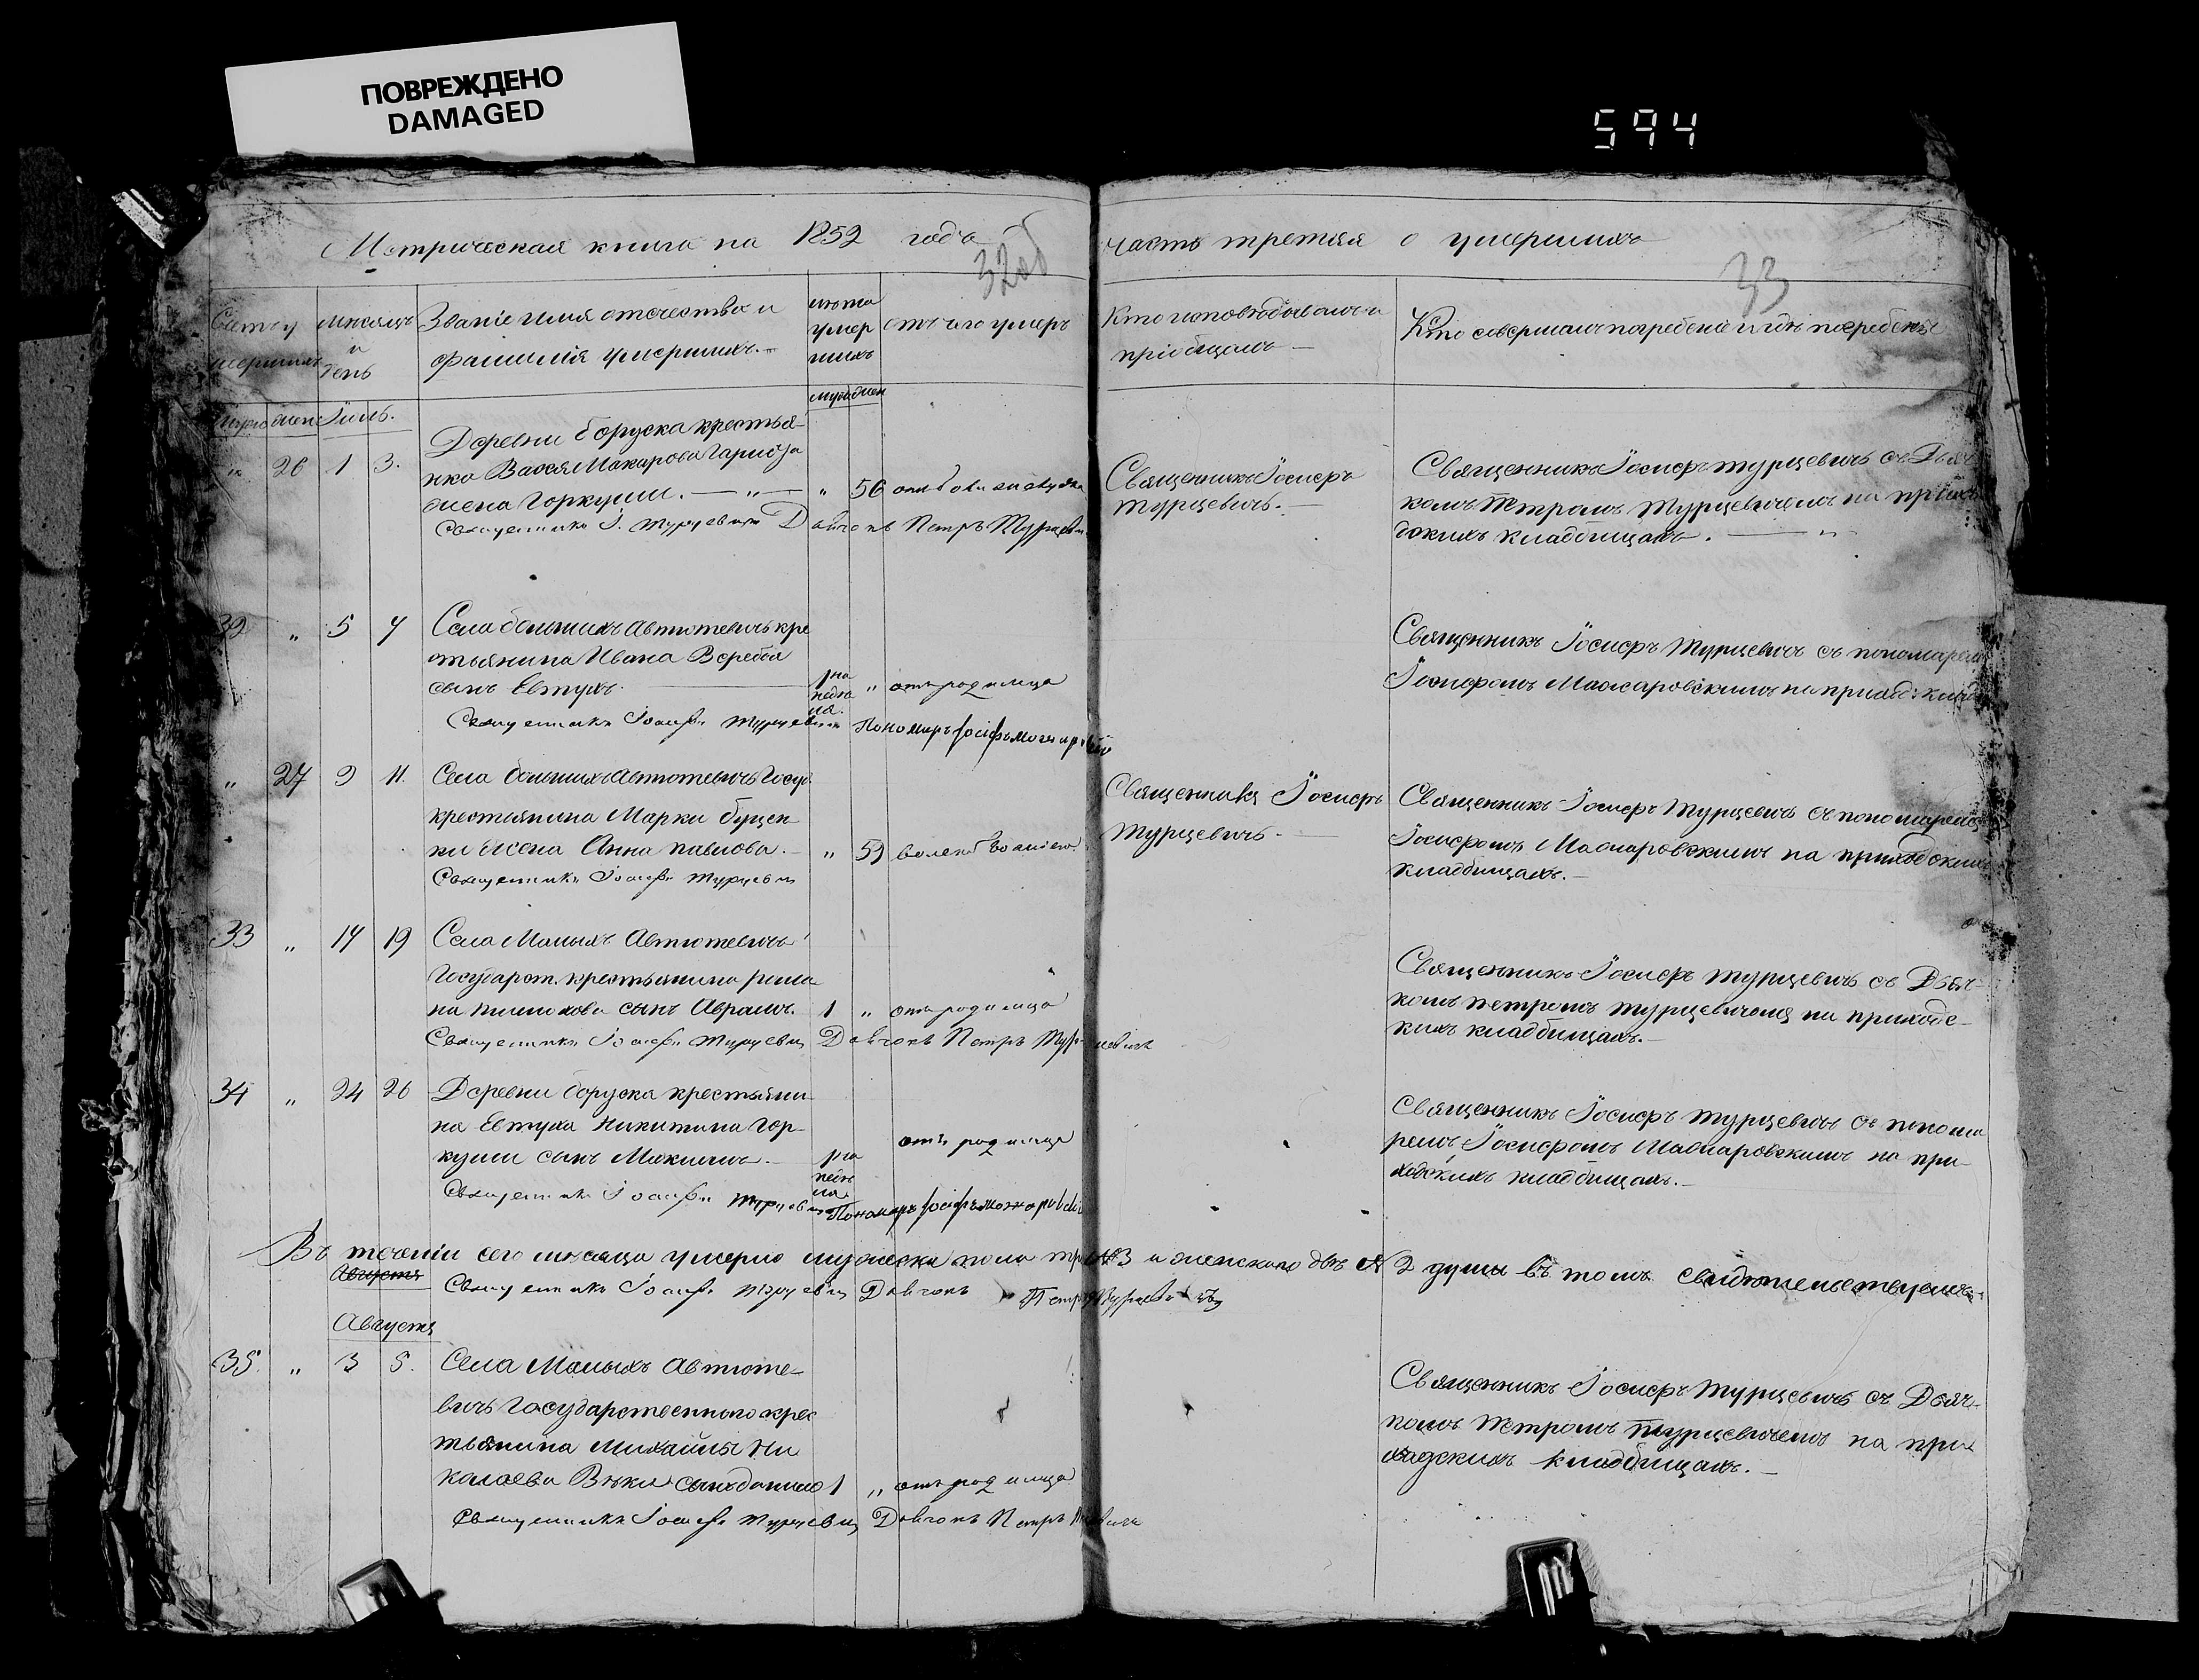 ПОВРЕЖДЕНО
DAMAGED
594
Метрическая книга на 1852 года
часть третяя о умершихъ
32об
33
Счетъ у
мершихъ
месяцъ
и
день
Званіе имя отечество и
фамилія умершихъ.
лета
умер
шихъ
отъ чего умеръ
Кто исповедывалъ и
пріобщалъ
Кто совершалъ погребеніе и где погребены
муж жен
Іюль.
муж жен
„ 26 1 3.
Деревни Боруска крестья-
нка Макарова
жена Горкуши. — „ —
„ 56
Священникъ І. Турцевичъ Дьячокъ Петръ Турцевичъ
Священникъ Іосифъ
Турцевичъ.
Священникъ Іосифъ Турцевичъ съ Дьяч
комъ Петромъ Турцевичемъ на приход
скихъ кладбищахъ. — „
32 „ 5 7
Села большихъ Автютевичъ кре
стьянина Ивана Веребея
сынъ Евтухъ.
1на
неде
ля.
„ отъ родимца
Священникъ Іосифъ Турцевичъ Пономаръ Іосифъ
Священникъ Іосифъ Турцевичъ съ пономаремъ
Іосифомъ на приход: кладб
„ 27 9 11.
Села большихъ Автютевичъ Госуд.
крестьянина Марки Буцен
ки жена Анна Павлова.
„ 59
Священникъ Іосифъ Турцевичъ
Священникъ Іосифъ
Турцевичъ.
Священникъ Іосифъ Турцевичъ съ пономаремъ
Іосифомъ на приходскихъ
кладбищахъ.
33 „ 17 19
Села Малыхъ Автютевичъ
Государст. крестьянина Рома
на сынъ Авраамъ.
1 „ отъ родимца
Священникъ Іосифъ Турцевичъ Дьячокъ Петръ Турцевичъ
Священникъ Іосифъ Турцевичъ съ Дьяч-
комъ Петромъ Турцевичемъ на приходс-
кихъ кладбищахъ.
34 „ 24 26
Деревни Боруска крестьяни
на Евтуха Никитина Гор-
куши сынъ Максимъ.
1на
неде
ля
отъ родимца
Священникъ Іосифъ Турцевичъ Пономаръ Іосифъ
Священникъ Іосифъ Турцевичъ съ понома
ремъ Іосифомъ на при-
ходскихъ кладбищахъ.
Въ теченіи сего месяца умерло мужеска пола три №3 и женскаго две № 2 души въ томъ свидетельствуемъ
Августъ
Священникъ Іосифъ Турцевичъ Дьячокъ Петръ Турцевичъ
Августъ
35. „ 3 5.
Села Малыхъ Автюте-
вичъ Государственнаго крес
тьянина Михайлы Ни
колаева сынъ Данило
1 „ отъ родимца
Священникъ Іосифъ Турцевичъ Дьячокъ Петръ
Священникъ Іосифъ Турцевичъ съ Дьяч-
комъ Петромъ Турцевичемъ на при
ходскихъ кладбищахъ.